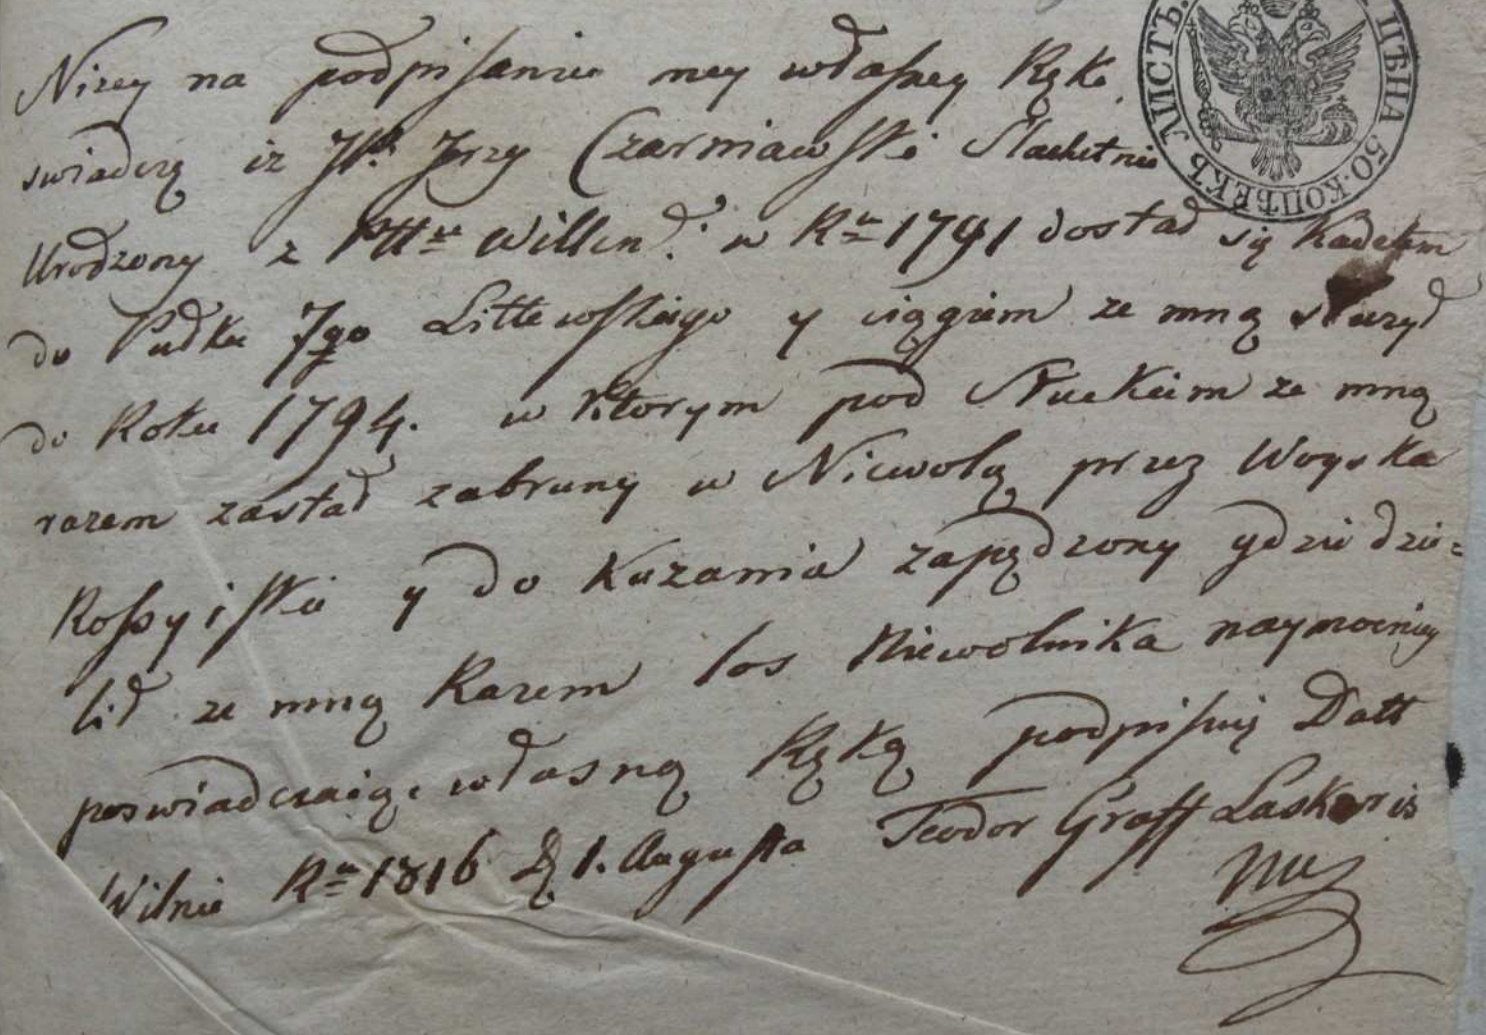 ЛИСТЪ. ЦѢНА 50. КОПѢЕКЪ
Nizey na podpisanie mey własney Ręke
swiadczę iz JP. Jerzy Czarniawski Slachetnie
Urodzony z Ptťu Willen. w Ru 1791 dostał się Kadetem
do Pułku 7go Littewskiego y ciągiem ze mną służył
do Roku 1794. w ktorym pod Słuckiem ze mną
razem zastał zabrany w Niewolą przez Woyska
Rossyiskie y do Kazania zapędzony gdzie dzie=
lił ze mną Razem los Niewolnika naymocniey
poswiadczaiąc własną Ręką podpisuię Datt
Wilnie Ru 1816 D 1. Augusta Teodor Graff Laskaris